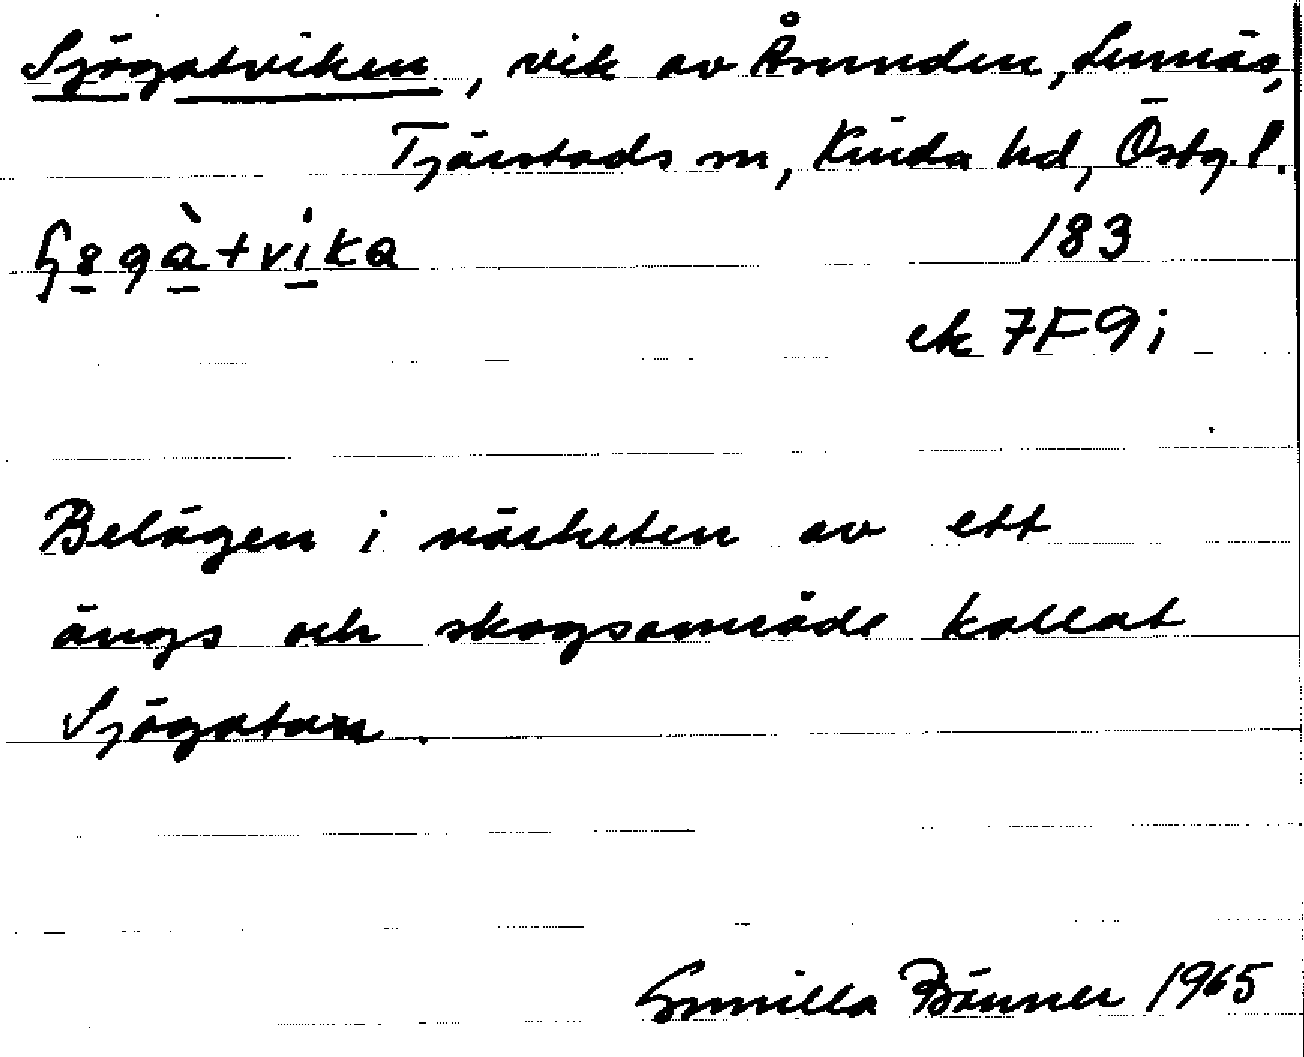 Sjögatviken, vik av Åsunden, Sunnäs,
Tjärstads sn, Kinda hd, Östg. l.
183
ek 7F9i
Belägen i närheten av ett
ängs och skogsområde kallat
Sjögatan.
Gunilla 1965